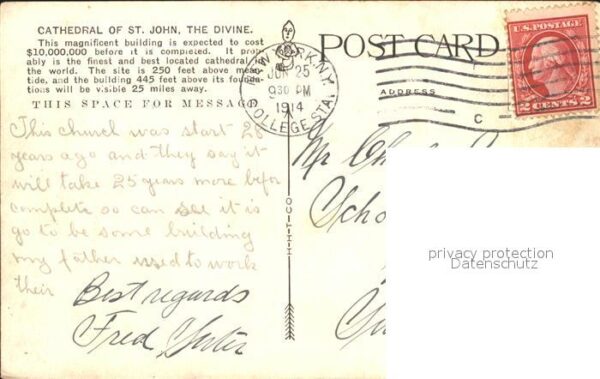 CATHEDRAL OF ST. JOHN, THE DIVINE.
This magnificent building is expected to cost
$10,000,000 before it is completed. It prob-
ably is the finest and best located cathedral in
the world. The site is 250 feet above mean
tide, and the building 445 feet above its founda-
tions will be visible 25 miles away.
THIS SPACE FOR MESSAGE
This church was start 28
years ago and they say it
will take 25 years more befor
complete so can see it is
go to be some building
my father used to work
their
Best regards
Fred
H-T-CO
POST CARD
ADDRESS
NEW YORK, N.Y.
JUN 25
930 PM
1914
COLLEGE STA.
C
U.S. POSTAGE
2 CENTS 2
Mr
privacy protection
Datenschutz